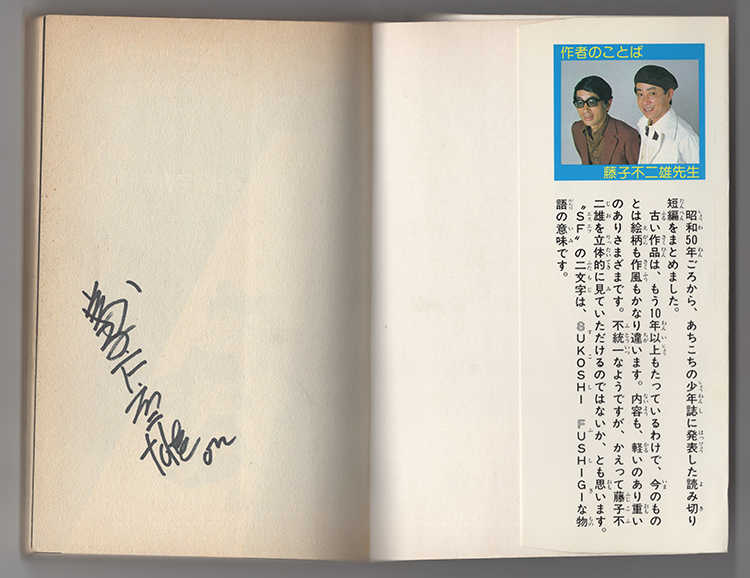 作者のことば
藤子不二雄先生
昭和50年ごろから、あちこちの少年誌に発表した読み切り
短編をまとめました。
古い作品は、もう10年以上もたっているわけで、今のもの
とは絵柄も作風もかなり違います。内容も、軽いのあり重い
のありさまざまです。不統一なようですが、かえって藤子不
二雄を立体的に見ていただけるのではないか、とも思います。
〝SF〟の二文字は、SUKOSHI FUSHIGIな物
語の意味です。
藤子不二雄